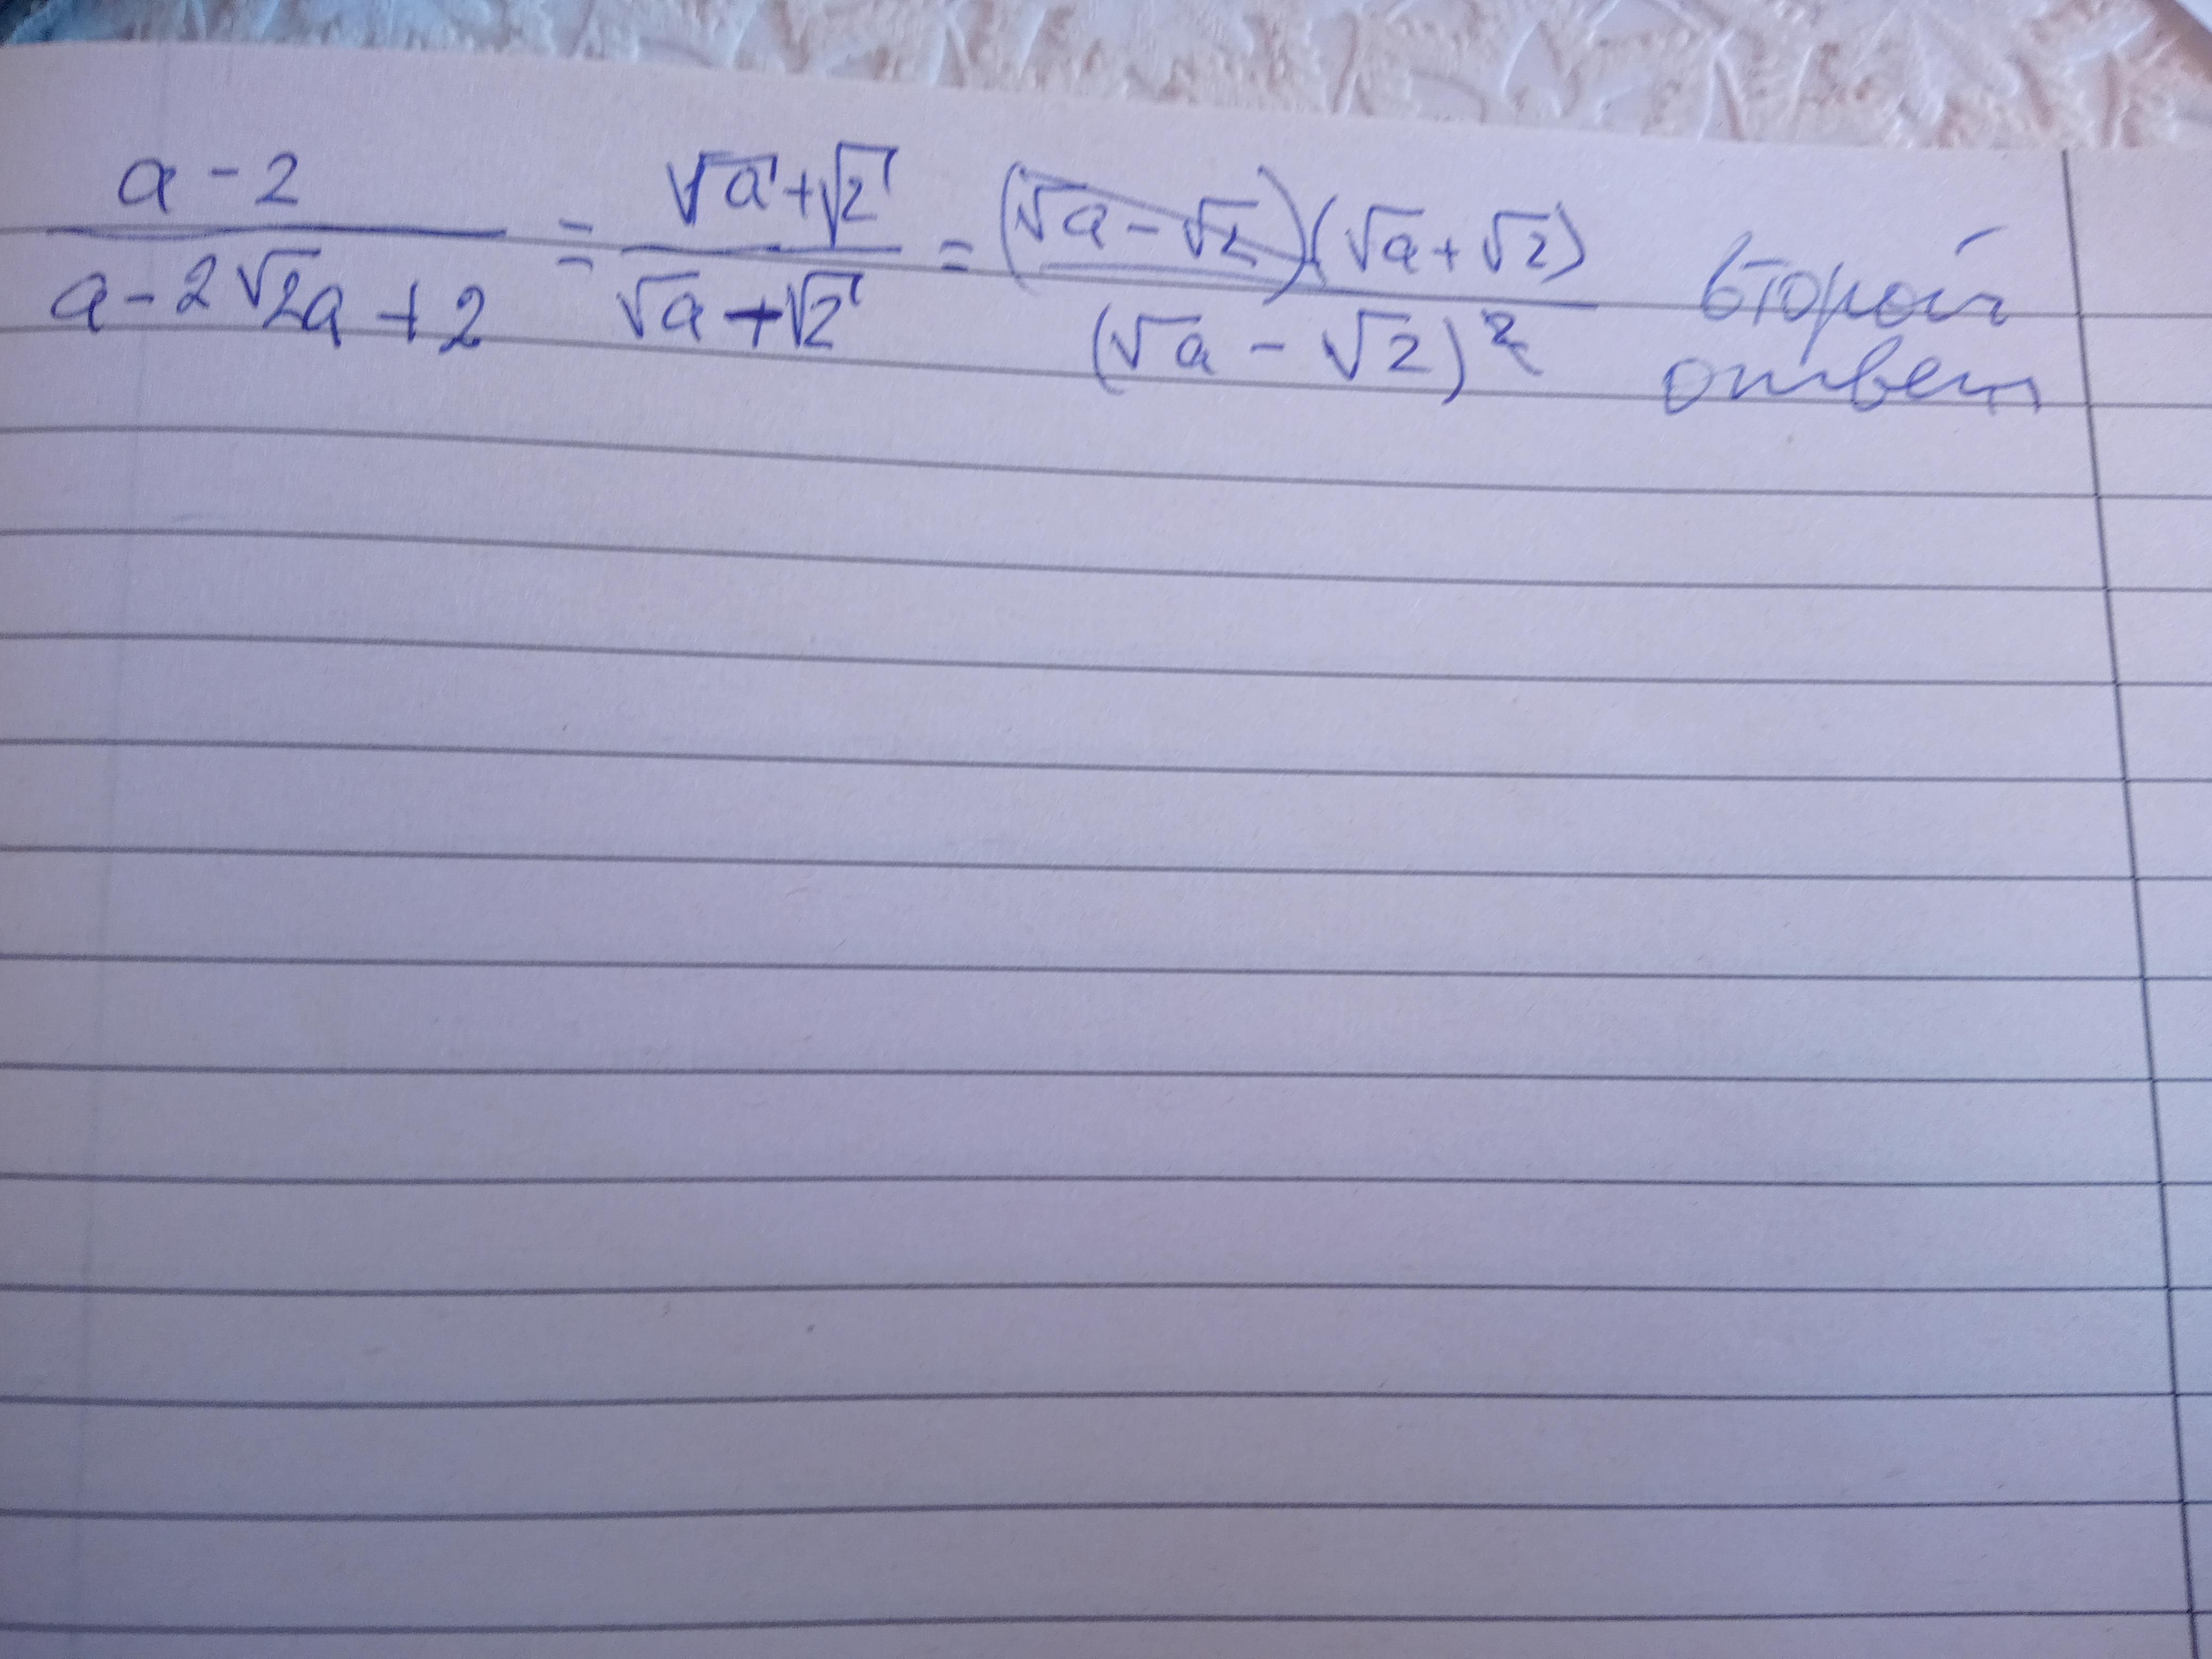 a - 2 / a - 2√2a + 2 = √a + √2 / √a + √2 = (√a - √2)(√a + √2) / (√a - √2)² второй
ответ